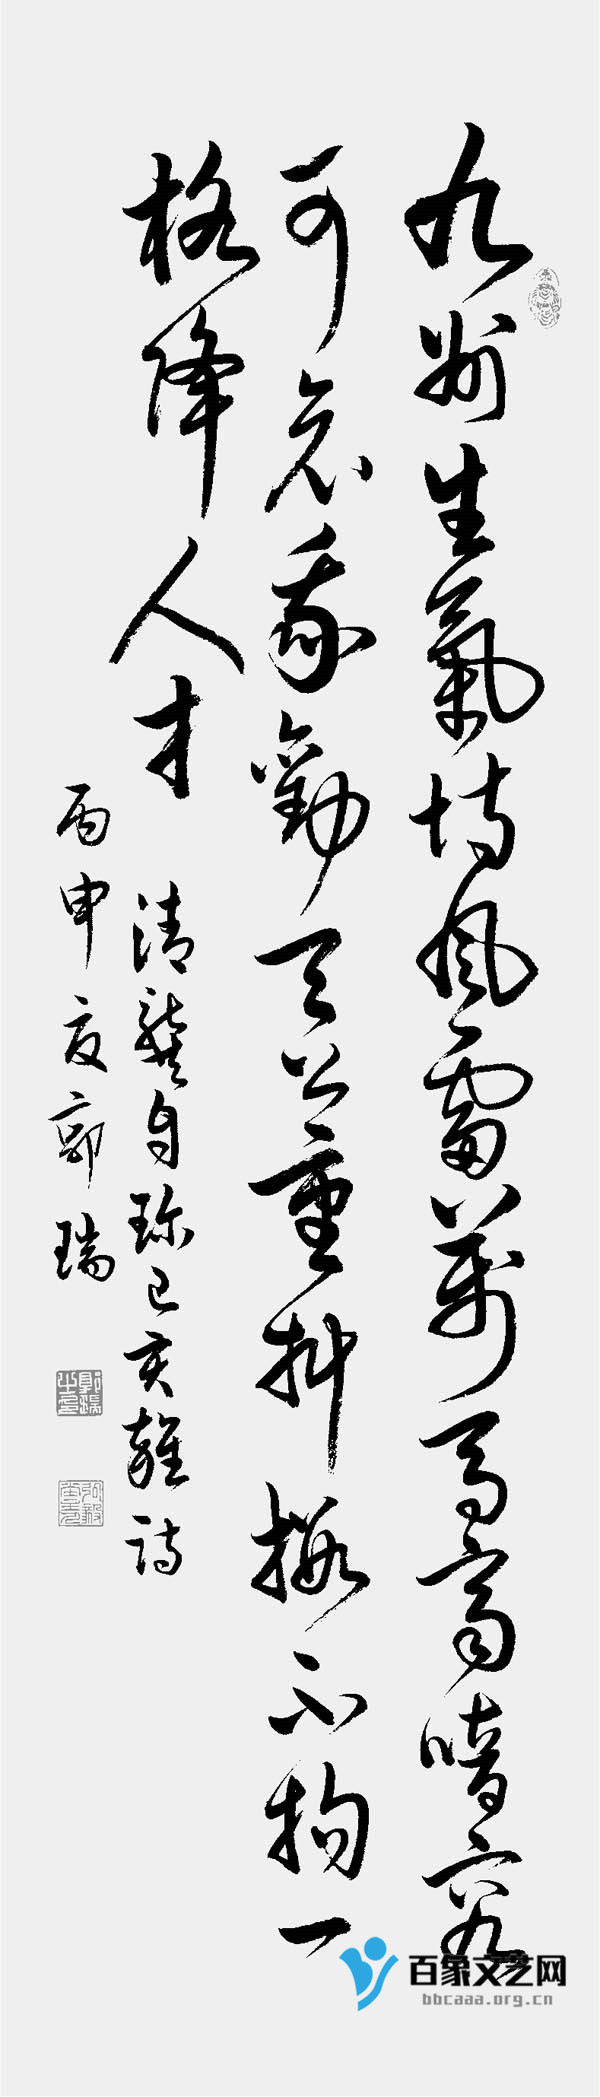 九州生氣恃風雷萬馬齊喑究
可哀我勸天公重抖擻不拘一
格降人才
清龔自珍己亥雜詩
丙申夏郭瑞
百象文艺网
bbcaaa.org.cn